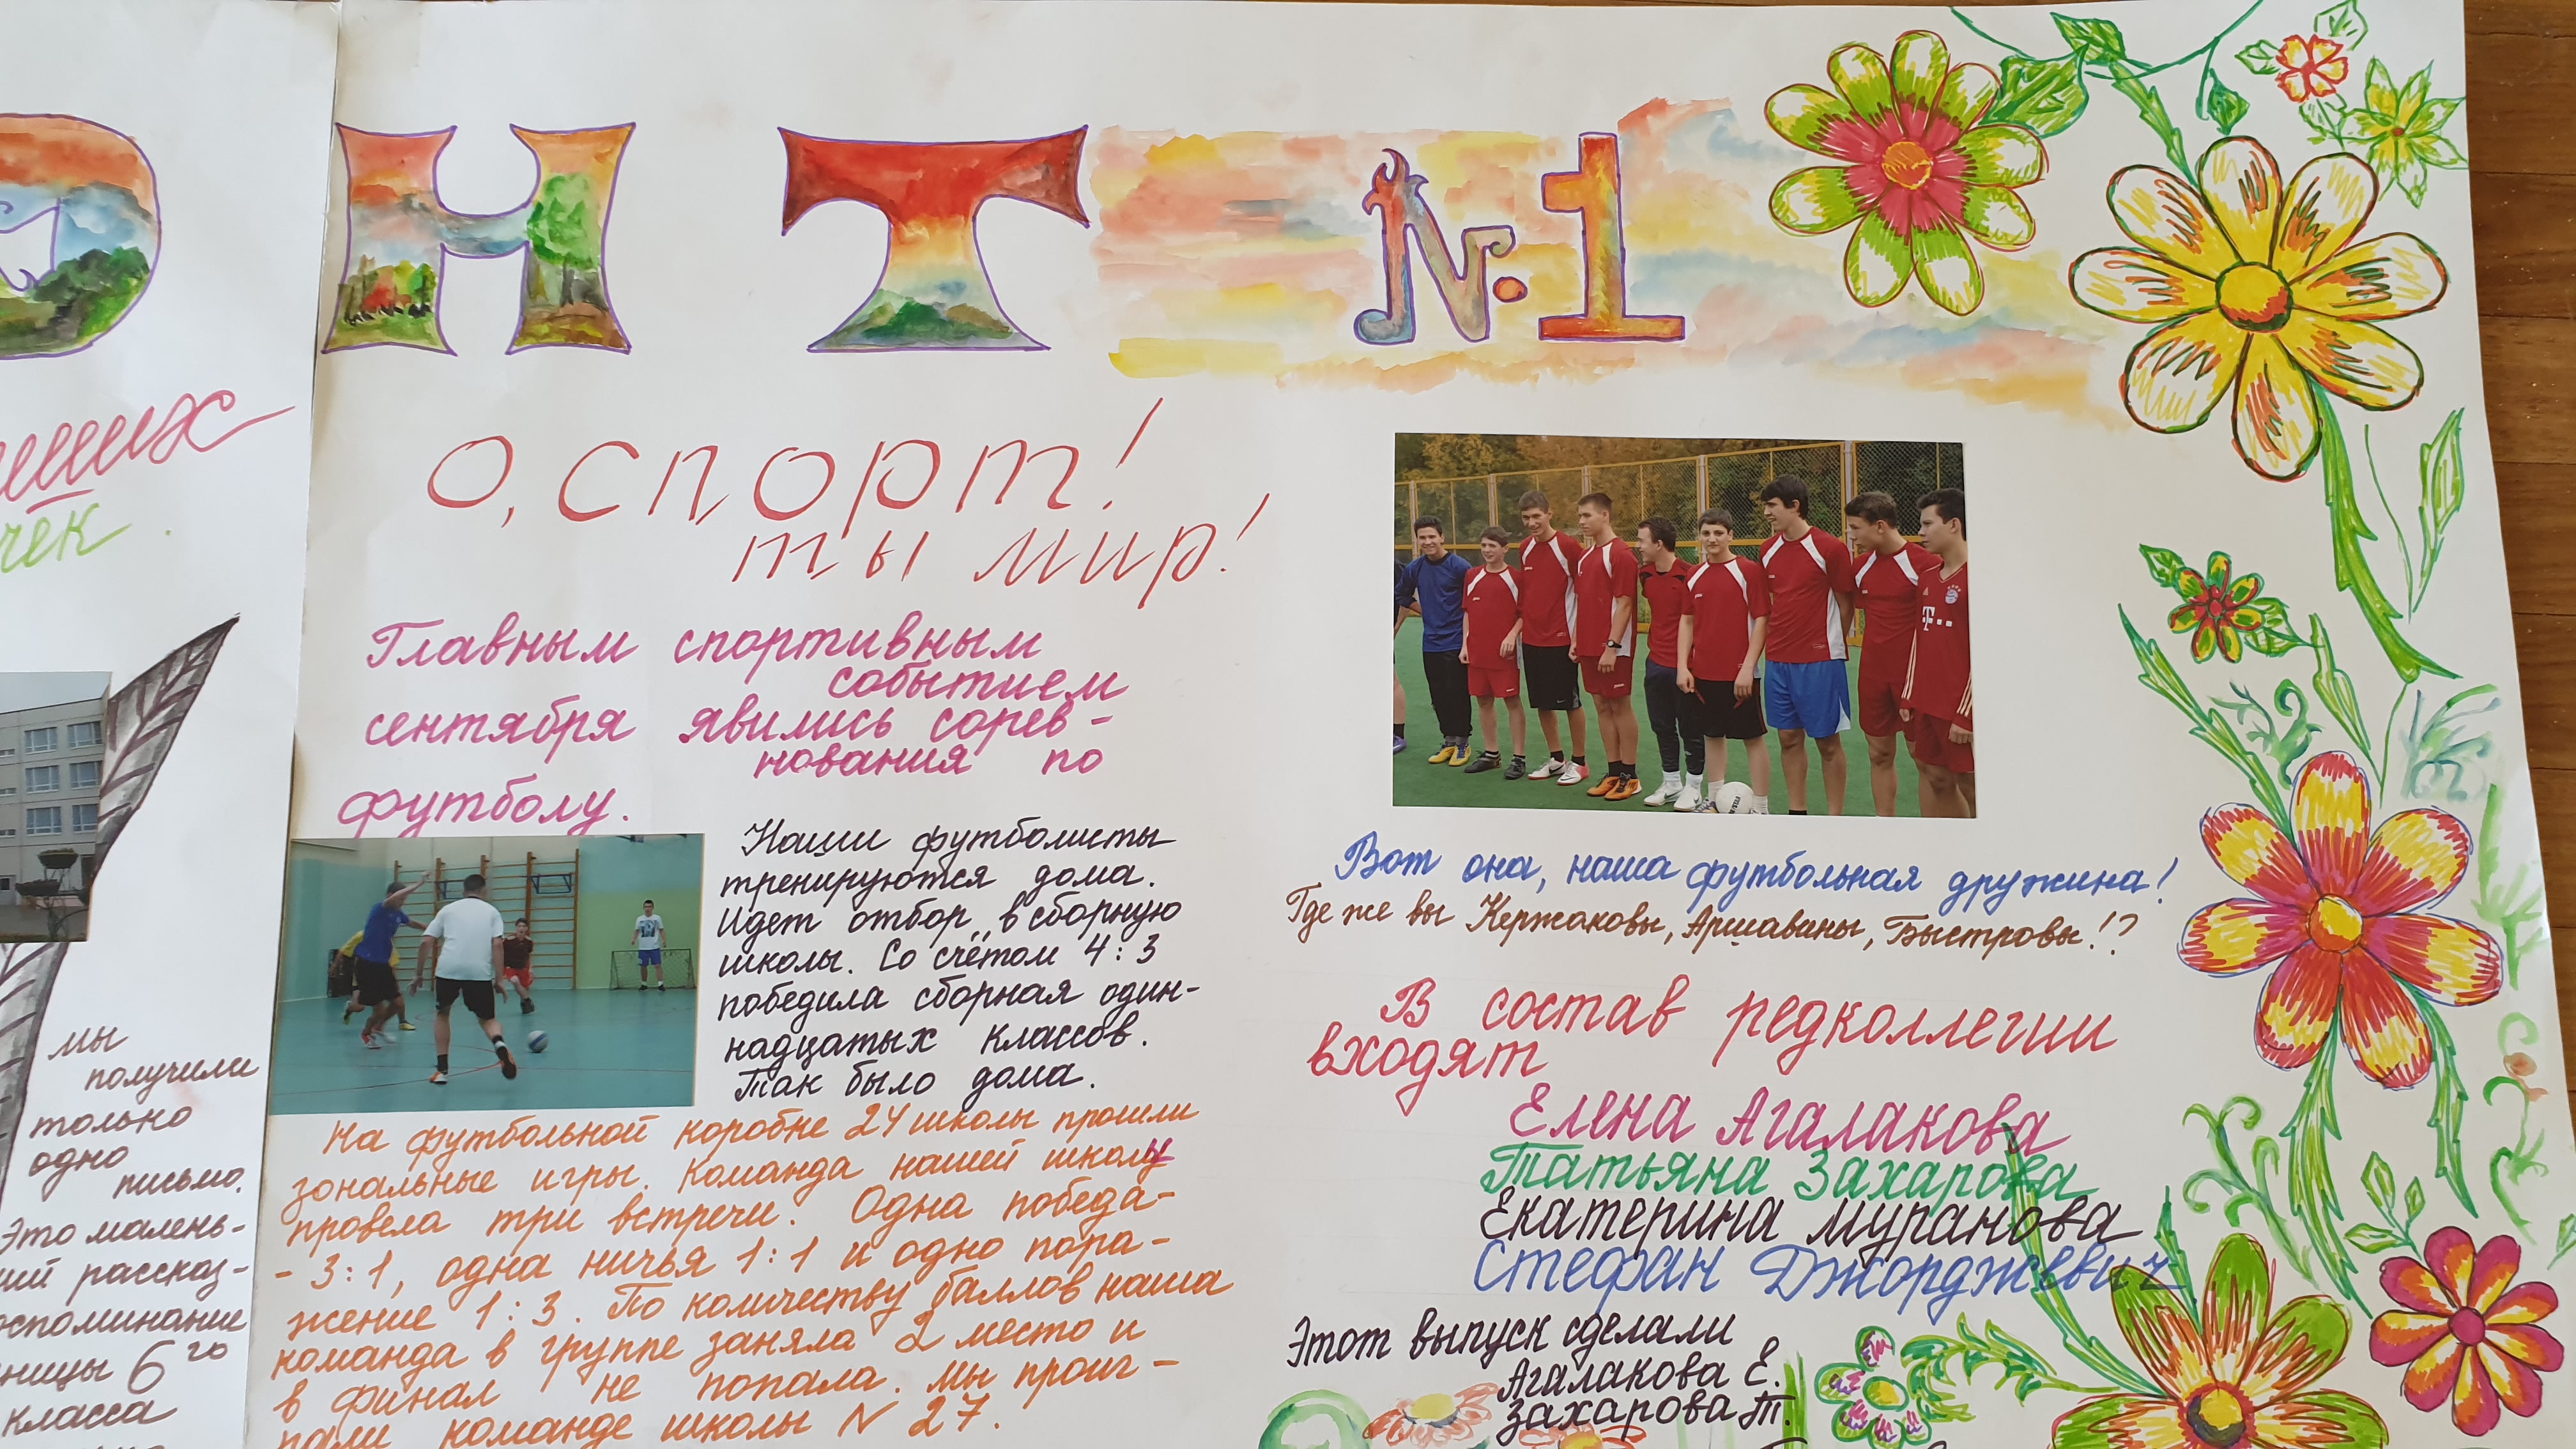 ОНТ №1
ших
чек.
О, спорт!
ты мир!
Главным спортивным
событием
сентября явились сорев-
нования по
футболу.
Наши футболисты
тренируются дома.
Идет отбор в сборную
школы. Со счётом 4:3
победила сборная один-
надцатых классов.
Так было дома.
На футбольной коробке 24 школы прошли
зональные игры. Команда нашей школы
провела три встречи. Одна победа-
- 3:1, одна ничья 1:1 и одно пора-
жение 1:3. По количеству баллов наша
команда в группе заняла 2 место и
в финал не попала. Мы проиг-
рали команде школы N 27.
мы
получили
только
одно
письмо.
Это малень-
кий рассказ-
воспоминание
ницы 6го
класса
Вот она, наша футбольная дружина!
Где же вы Кержаковы, Аршавины, Быстровы!?
В состав редколлегии
входят
Елена Агалакова
Татьяна Захарова
Екатерина Муранова
Стефан Джорджевич
Этот выпуск сделали
Агалакова Е.
Захарова Т.